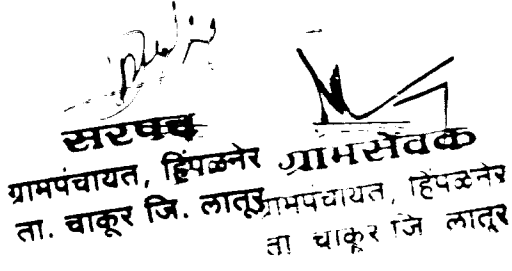 सरपंच
ग्रामपंचायत, हिंपळनेर
ता. चाकूर जि. लातूर
ग्रामसेवक
ग्रामपंचायत, हिंपळनेर
ता चाकूर जि लातूर